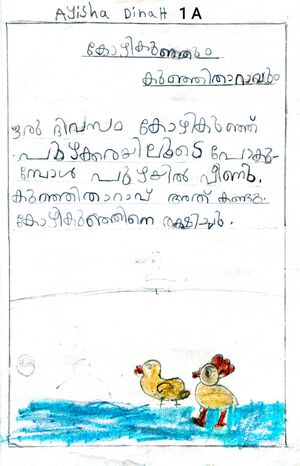 Ayisha Dinah 1A
കോഴികുഞ്ഞും
കുഞ്ഞിതാറാവും
ഒരു ദിവസം കോഴികുഞ്ഞ്
പുഴക്കരയിലൂടെ പോകു-
മ്പോൾ പുഴയിൽ വീണു.
കുഞ്ഞിതാറാവ് അത് കണ്ടു.
കോഴികുഞ്ഞിനെ രക്ഷിച്ചു.